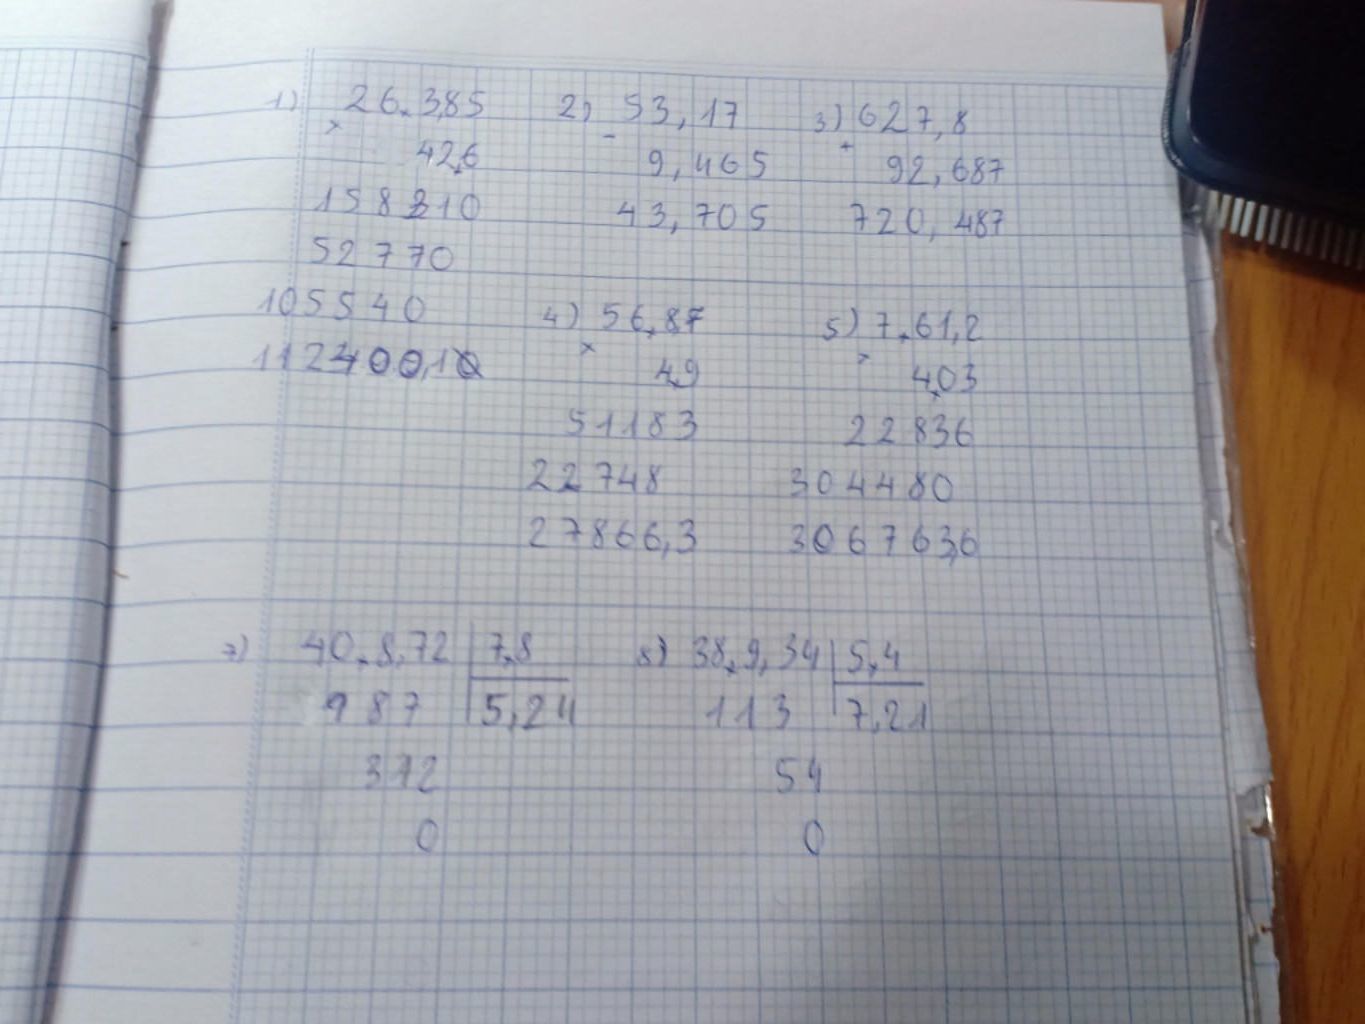 1) 26.385
×
42,6
158310
52770
105540
1124001,10
2) 53,17
-
9,465
43,705
3) 627,8
+
92,687
720,487
4) 56.87
×
4,9
51183
22748
27866,3
5) 7.61,2
×
4,03
22836
304480
306763,6
7) 40.8,72 7,8
987 5,24
312
0
8) 38.9,34 5,4
113 7,21
54
0